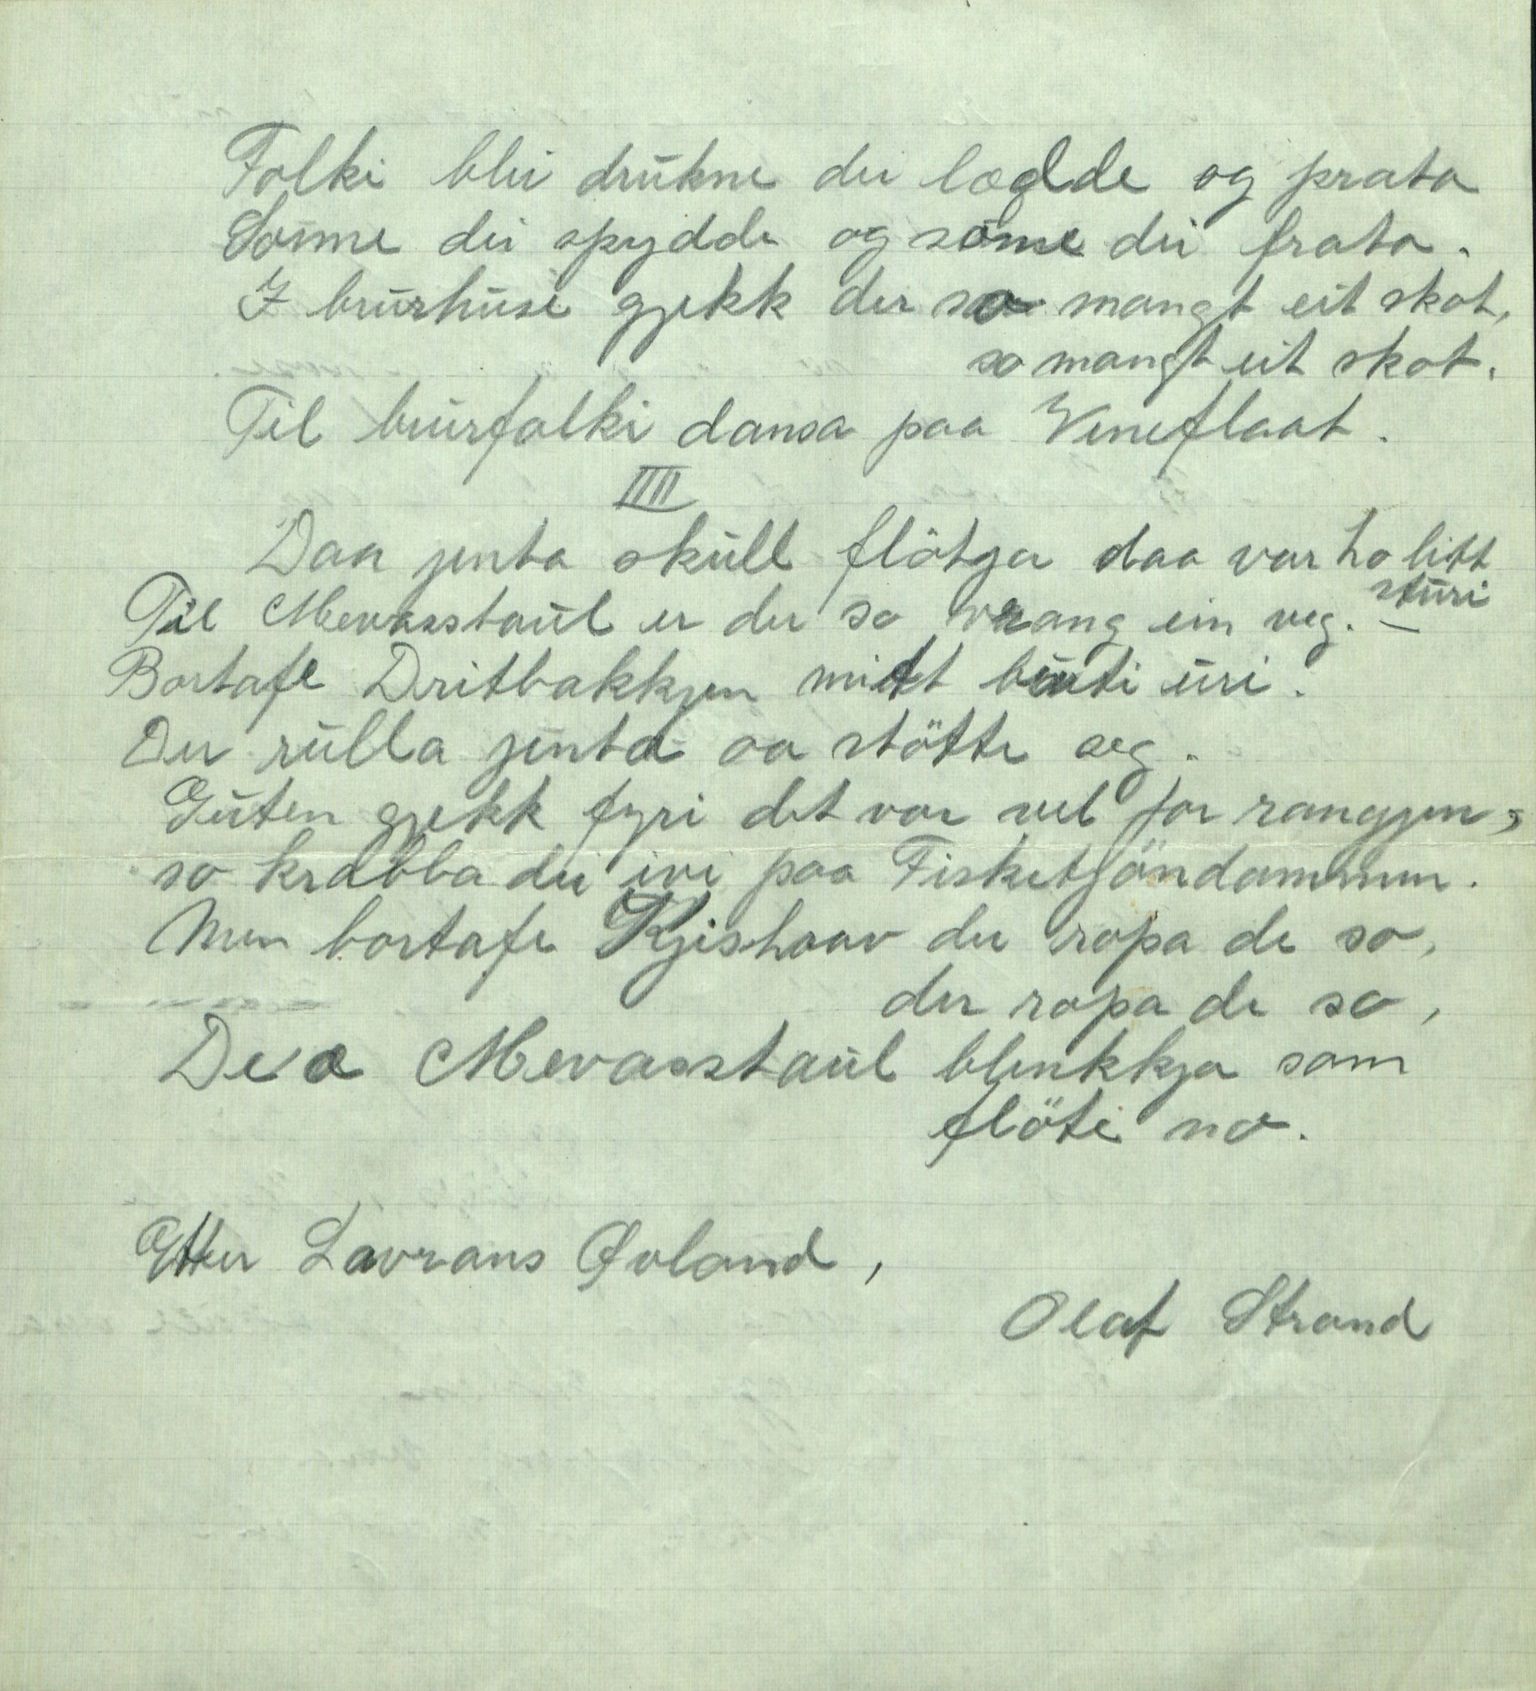 Folki blei drukne dei lædde og prata
Somme dei spydde og somme dei frata.
I brurhuse gjekk der so mangt eit skot,
so mangt eit skot.
Til brurfolki dansa paa Vineflaat.
IIII
Daa jenta skull flötja daa var ho litt
sturi
Til Mevasstaul er der so vrang ein veg. –
Bortafe Dritbakkjen midt burti uri.
Der rulla jenta aa stötte seg.
Guten gjekk fyri det var vel for rangjen,
so krabba dei ivi paa Fisketjöndammen.
Men bortafe Kjishaav der ropa de so,
der ropa de so,
De æ Mevasstaul blenkkja som
flöti no.
Etter Lavrans Øvland,
Olaf Strand